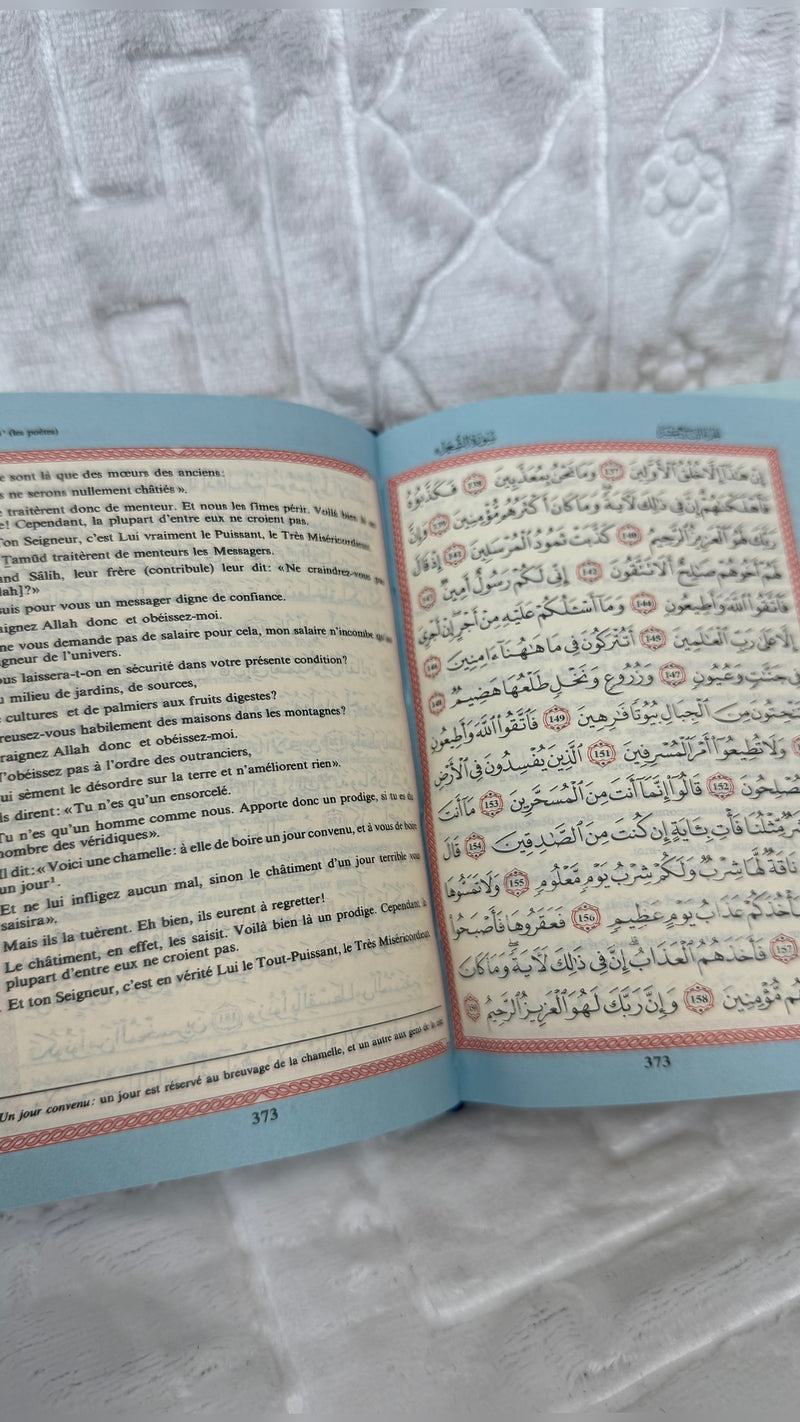 (les poètes)
sont là que des mœurs des anciens:
ne serons nullement châtiés ».
traitèrent donc de menteur. Et nous les fîmes périr. Voilà bien là
! Cependant, la plupart d'entre eux ne croient pas.
on Seigneur, c'est Lui vraiment le Puissant, le Très Miséricordieux
Tamûd traitèrent de menteurs les Messagers.
and Sâlih, leur frère (contribule) leur dit: «Ne craindrez-vous
lah]?»
suis pour vous un messager digne de confiance.
aignez Allah donc et obéissez-moi.
ne vous demande pas de salaire pour cela, mon salaire n'incombe
gneur de l'univers.
ous laissera-t-on en sécurité dans votre présente condition?
milieu de jardins, de sources,
cultures et de palmiers aux fruits digestes?
reusez-vous habilement des maisons dans les montagnes?
raignez Allah donc et obéissez-moi.
'obéissez pas à l'ordre des outranciers,
ui sèment le désordre sur la terre et n'améliorent rien».
ls dirent: «Tu n'es qu'un ensorcelé.
Tu n'es qu'un homme comme nous. Apporte donc un prodige, si tu es du
nombre des véridiques».
Il dit: « Voici une chamelle: à elle de boire un jour convenu, et à vous de boire
un jour¹.
Et ne lui infligez aucun mal, sinon le châtiment d'un jour terrible vous
saisira».
Mais ils la tuèrent. Eh bien, ils eurent à regretter!
Le châtiment, en effet, les saisit. Voilà bien là un prodige. Cependant,
plupart d'entre eux ne croient pas.
Et ton Seigneur, c'est en vérité Lui le Tout-Puissant, le Très Miséricordieux.
Un jour convenu: un jour est réservé au breuvage de la chamelle, et un autre aux gens de la
373
سُورَةُ الشُّعَرَاءِ
إِنْ هَٰذَا إِلَّا خُلُقُ الْأَوَّلِينَ 137 وَمَا نَحْنُ بِمُعَذَّبِينَ 138 فَكَذَّبُوهُ
فَأَهْلَكْنَاهُمْ إِنَّ فِي ذَٰلِكَ لَآيَةً وَمَا كَانَ أَكْثَرُهُم مُّؤْمِنِينَ 139 وَإِنَّ
رَبَّكَ لَهُوَ الْعَزِيزُ الرَّحِيمُ 140 كَذَّبَتْ ثَمُودُ الْمُرْسَلِينَ 141 إِذْ قَالَ
لَهُمْ أَخُوهُمْ صَالِحٌ أَلَا تَتَّقُونَ 142 إِنِّي لَكُمْ رَسُولٌ أَمِينٌ 143
فَاتَّقُوا اللَّهَ وَأَطِيعُونِ 144 وَمَا أَسْأَلُكُمْ عَلَيْهِ مِنْ أَجْرٍ إِنْ أَجْرِيَ
إِلَّا عَلَىٰ رَبِّ الْعَالَمِينَ 145 أَتُتْرَكُونَ فِي مَا هَاهُنَا آمِنِينَ 146
فِي جَنَّاتٍ وَعُيُونٍ 147 وَزُرُوعٍ وَنَخْلٍ طَلْعُهَا هَضِيمٌ 148
وَتَنْحِتُونَ مِنَ الْجِبَالِ بُيُوتًا فَارِهِينَ 149 فَاتَّقُوا اللَّهَ وَأَطِيعُونِ
وَلَا تُطِيعُوا أَمْرَ الْمُسْرِفِينَ 151 الَّذِينَ يُفْسِدُونَ فِي الْأَرْضِ
يُصْلِحُونَ 152 قَالُوا إِنَّمَا أَنتَ مِنَ الْمُسَحَّرِينَ 153 مَا أَنتَ
بَشَرٌ مِّثْلُنَا فَأْتِ بِآيَةٍ إِن كُنتَ مِنَ الصَّادِقِينَ 154 قَالَ
نَاقَةٌ لَّهَا شِرْبٌ وَلَكُمْ شِرْبُ يَوْمٍ مَّعْلُومٍ 155 وَلَا تَمَسُّوهَا
فَيَأْخُذَكُمْ عَذَابُ يَوْمٍ عَظِيمٍ 156 فَعَقَرُوهَا فَأَصْبَحُوا
157 فَأَخَذَهُمُ الْعَذَابُ إِنَّ فِي ذَٰلِكَ لَآيَةً وَمَا كَانَ
هُم مُّؤْمِنِينَ 158 وَإِنَّ رَبَّكَ لَهُوَ الْعَزِيزُ الرَّحِيمُ
373